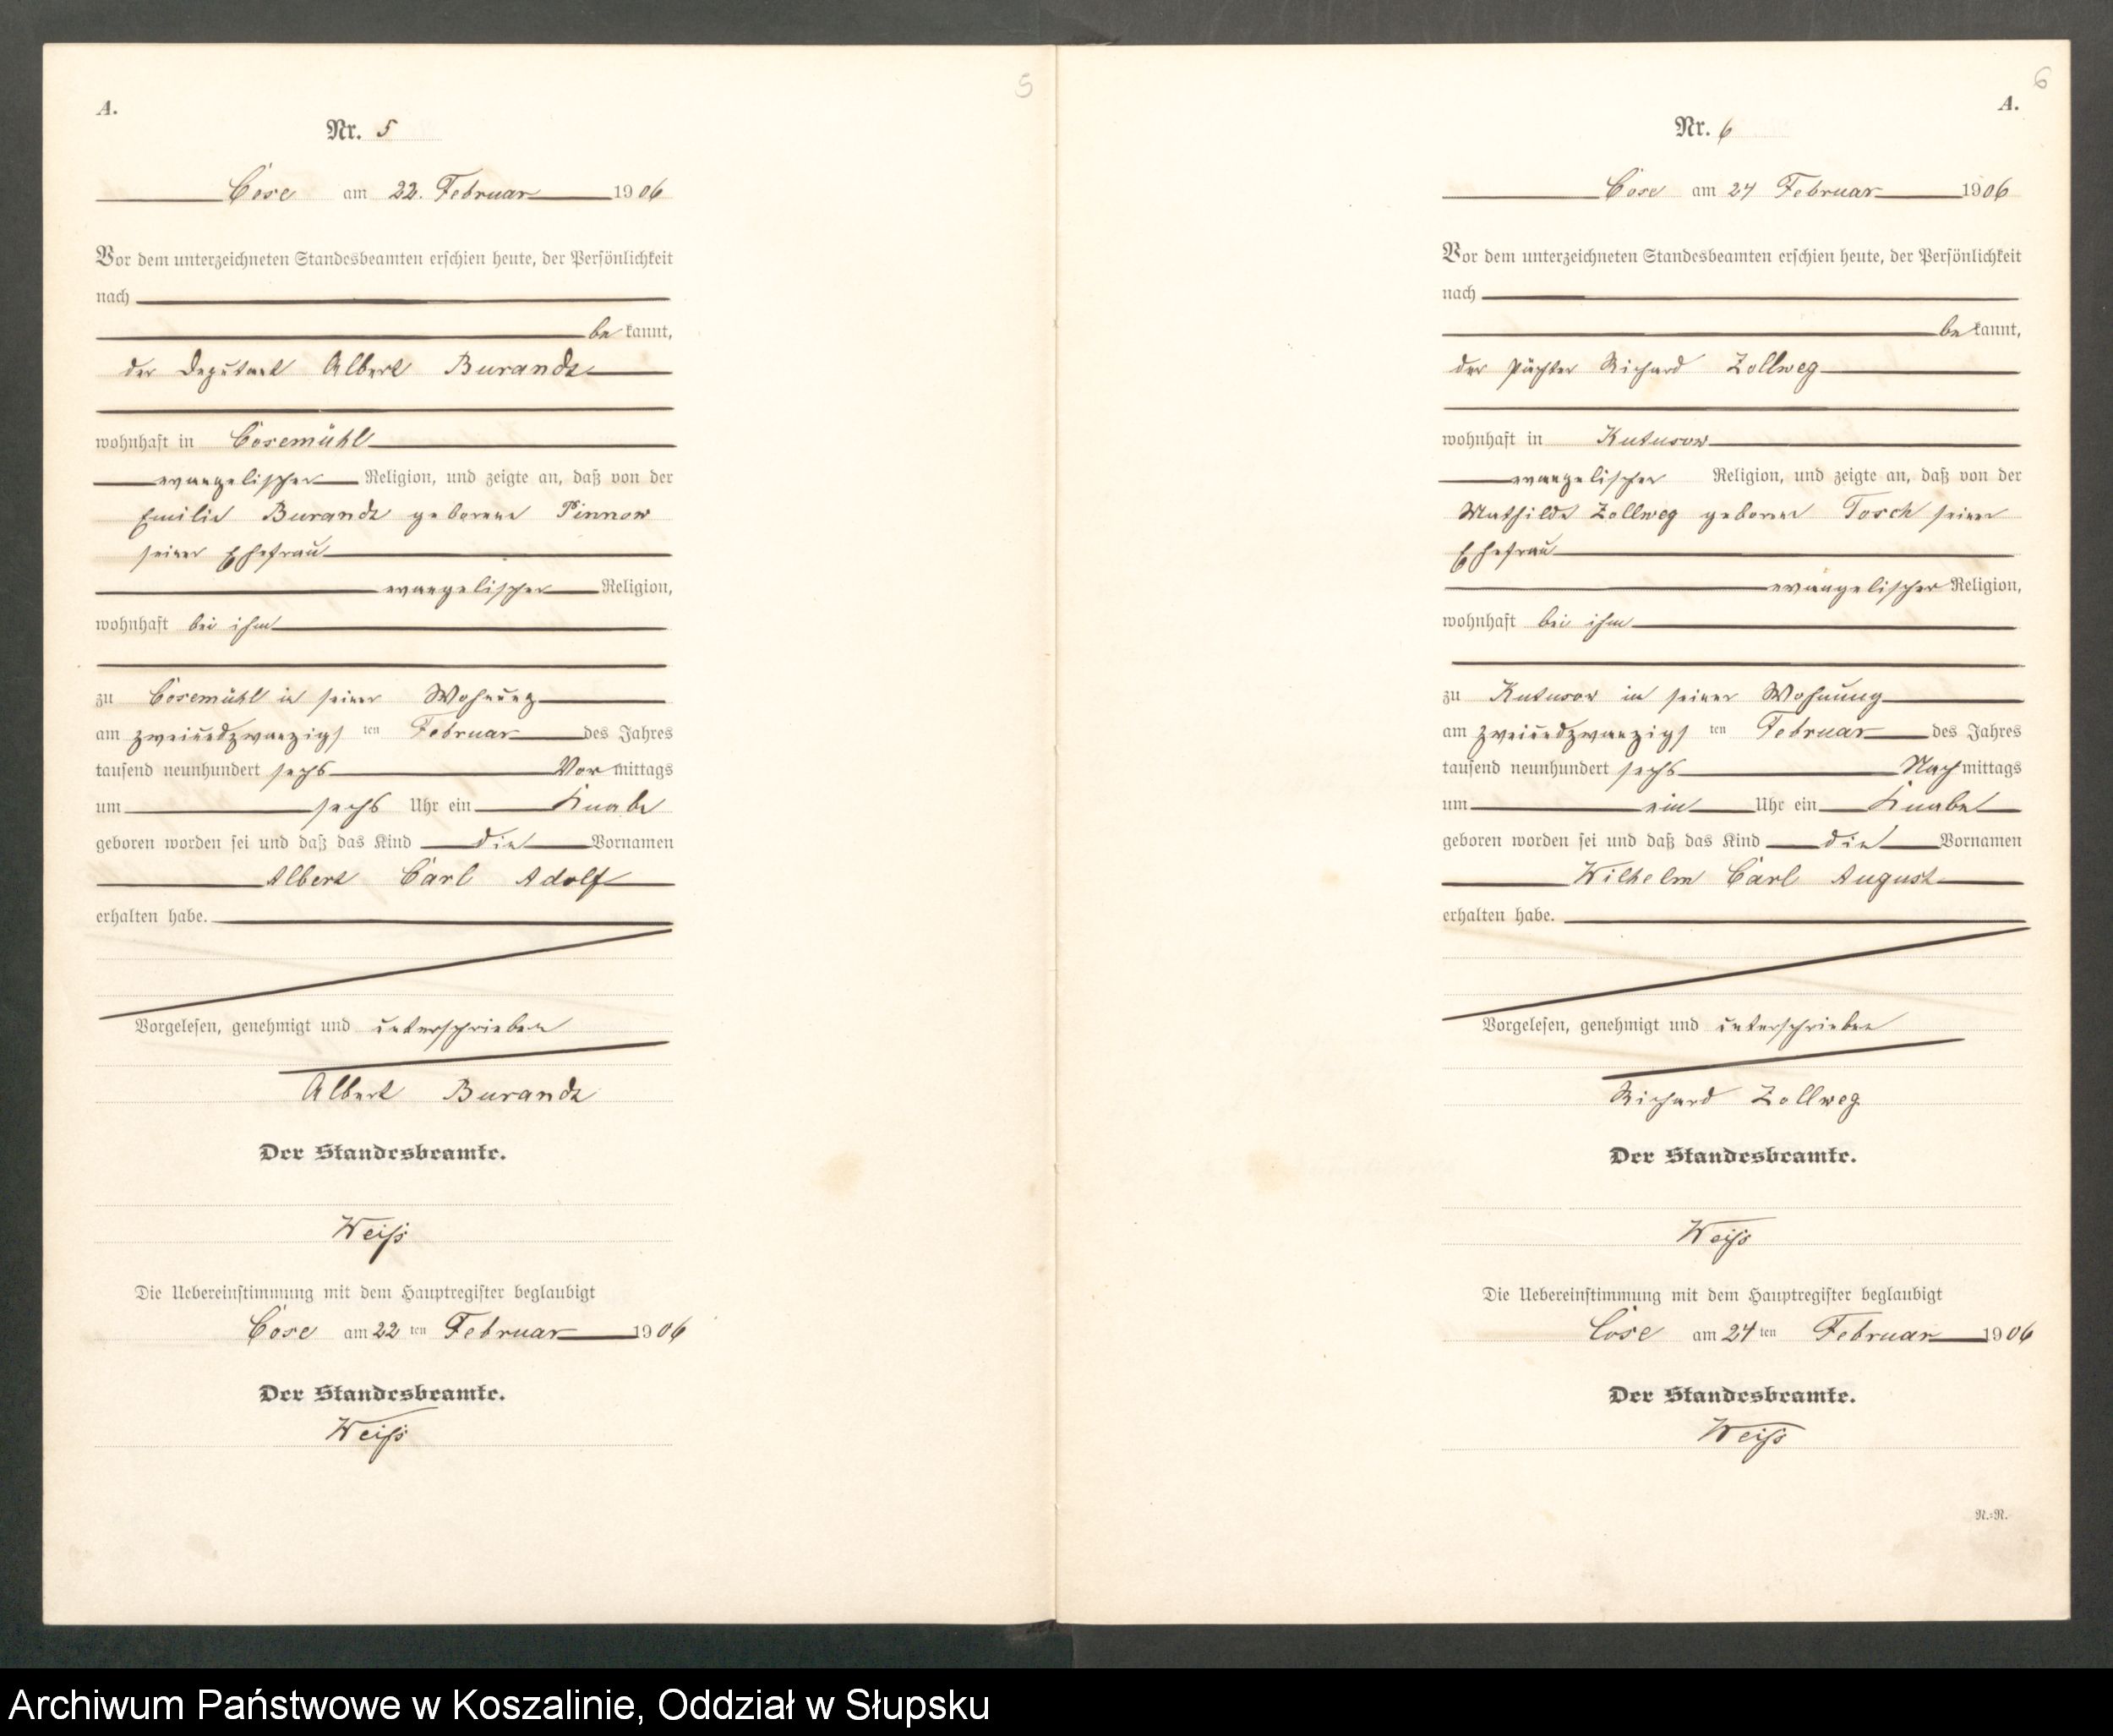 5
A.
Nr. 5
Cose am 22. Februar 1906
Vor dem unterzeichneten Standesbeamten erschien heute, der Persönlichkeit
nach
be kannt,
der Deputant Albert Burandt
wohnhaft in Cosemühl
evangelischer Religion, und zeigte an, daß von der
Emilie Burandt geborene Pinnow
seiner Ehefrau
evangelischer Religion,
wohnhaft bei ihm
zu Cosemühl in seiner Wohnung
am zweiundzwanzigs ten Februar des Jahres
tausend neunhundert sechs Vor mittags
um sechs Uhr ein Knabe
geboren worden sei und daß das Kind die Vornamen
Albert Carl Adolf
erhalten habe.
Vorgelesen, genehmigt und unterschrieben
Albert Burandt
Der Standesbeamte.
Weiß
Die Uebereinstimmung mit dem Hauptregister beglaubigt
Cose am 22 ten Februar 1906
Der Standesbeamte.
Weiß
6
A.
Nr. 6
Cose am 24 Februar 1906
Vor dem unterzeichneten Standesbeamten erschien heute, der Persönlichkeit
nach
be kannt,
der Pächter Richard Zollweg
wohnhaft in Kutusow
evangelischer Religion, und zeigte an, daß von der
Mathilde Zollweg geborene Tosch seiner
Ehefrau
evangelischer Religion,
wohnhaft bei ihm
zu Kutusow in seiner Wohnung
am zweiundzwanzigs ten Februar des Jahres
tausend neunhundert sechs Nach mittags
um ein Uhr ein Knabe
geboren worden sei und daß das Kind die Vornamen
Wilhelm Carl August
erhalten habe.
Vorgelesen, genehmigt und unterschrieben
Richard Zollweg
Der Standesbeamte.
Weiß
Die Uebereinstimmung mit dem Hauptregister beglaubigt
Cose am 24 ten Februar 1906
Der Standesbeamte.
Weiß
N.=N.
Archiwum Państwowe w Koszalinie, Oddział w Słupsku